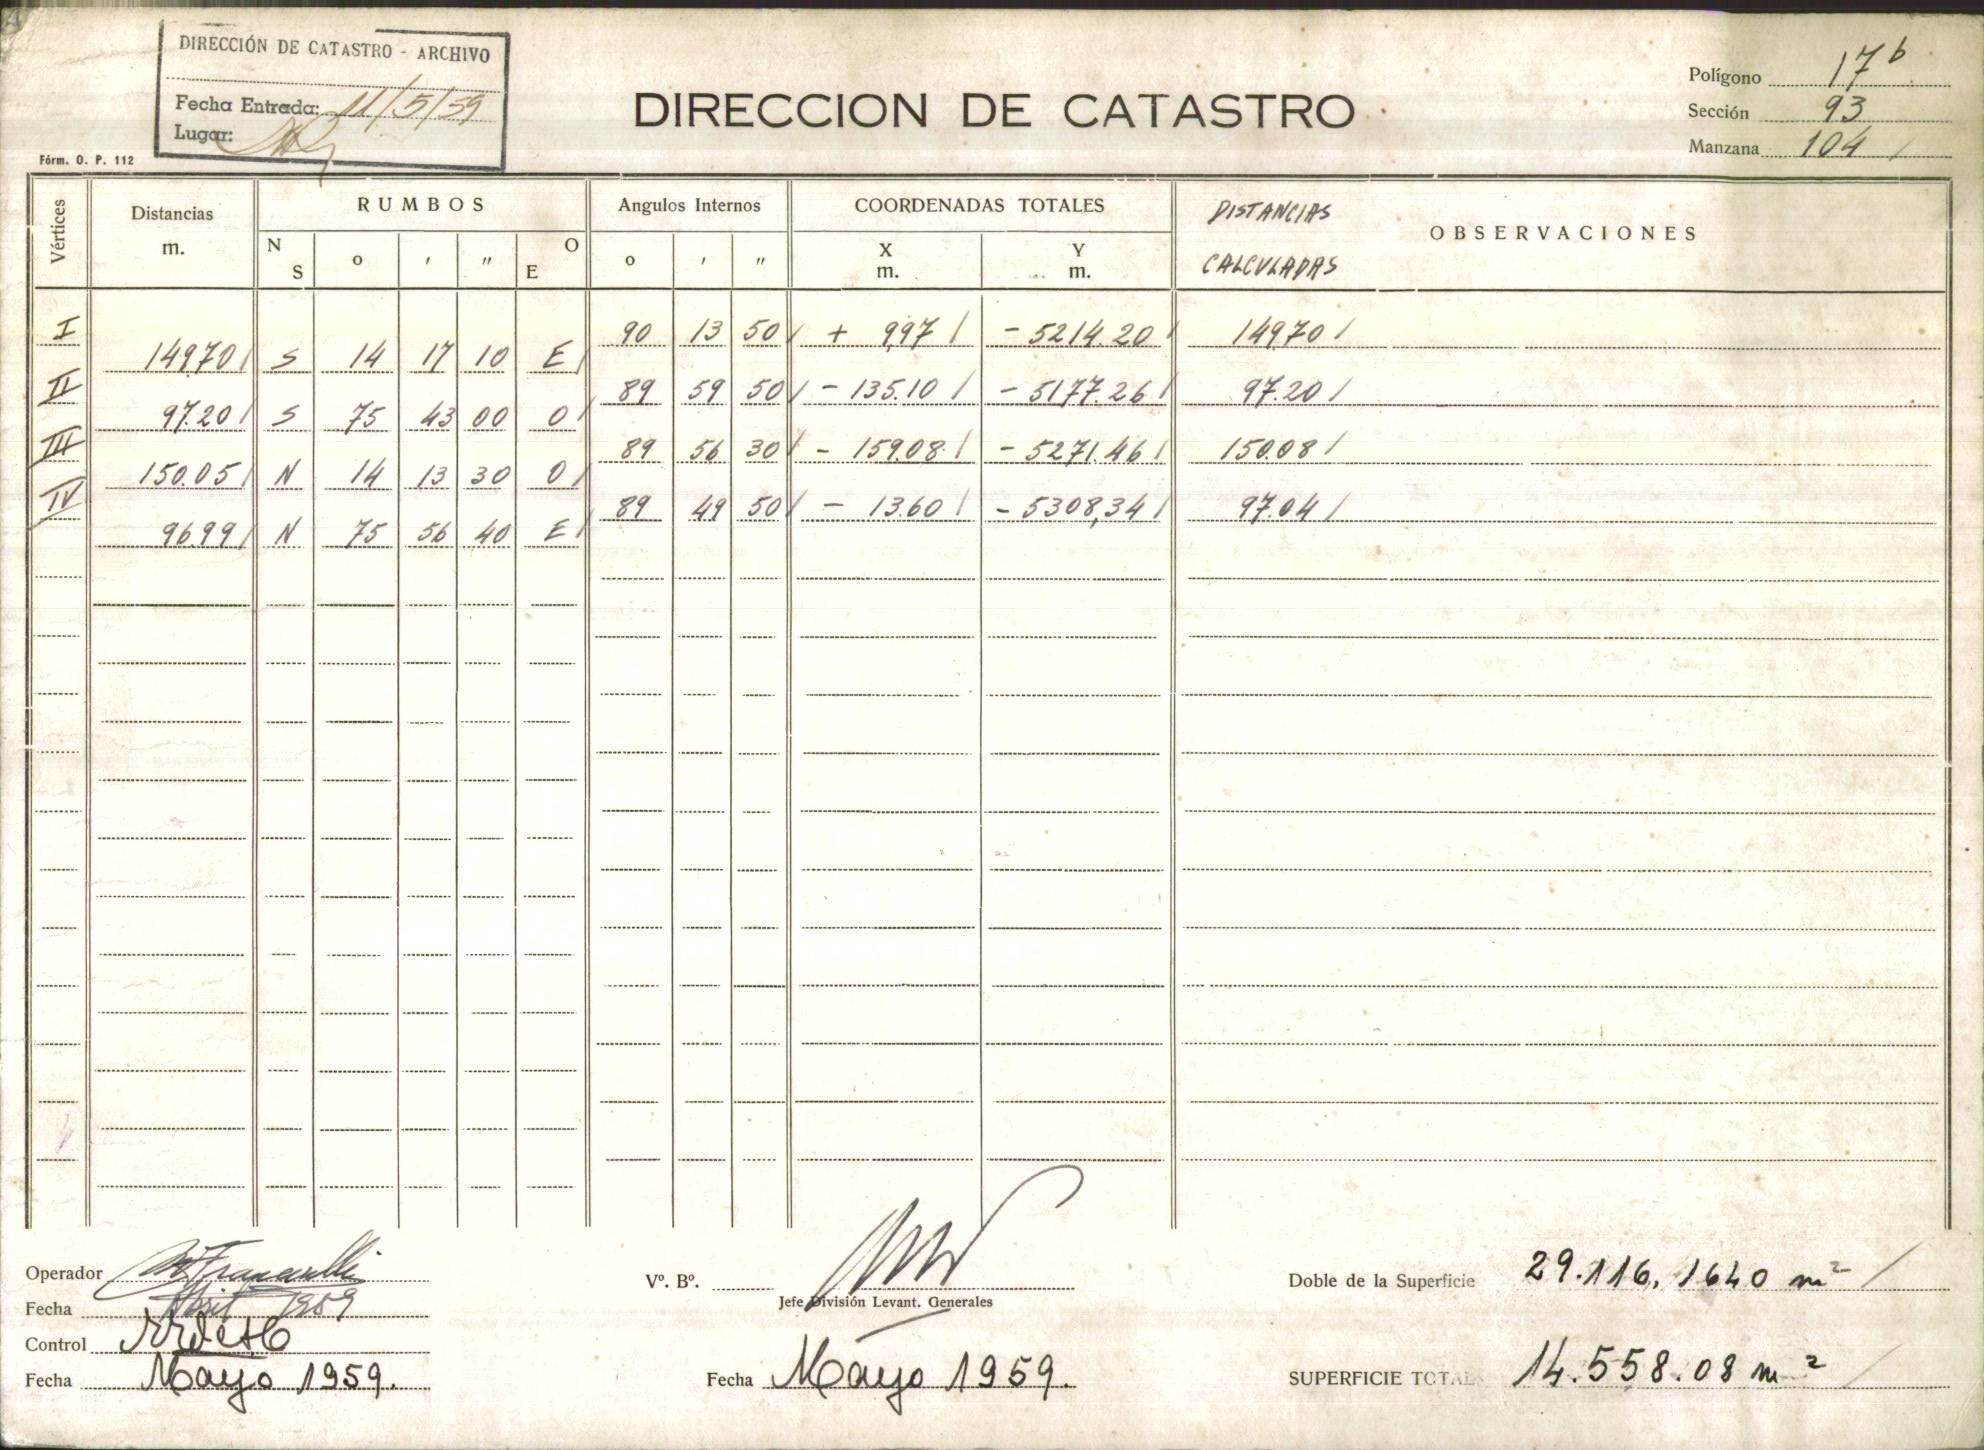 DIRECCIÓN DE CATASTRO - ARCHIVO
Fecha Entrada: 11/5/59
Lugar:
Fórm. O. P. 112
DIRECCION DE CATASTRO
Polígono 17b
Sección 93
Manzana 104 /
Vértices Distancias m. RUMBOS N S o ' " O E Angulos Internos o ' " COORDENADAS TOTALES X m. Y m. DISTANCIAS CALCULADAS OBSERVACIONES
I 90 13 50 / + 9.97 / - 5214.20 / 149.70 /
149.70 / S 14 17 10 E /
II 89 59 50 / - 135.10 / - 5177.26 / 97.20 /
97.20 / S 75 43 00 O /
III 89 56 30 / - 159.08 / - 5271.46 / 150.08 /
150.05 / N 14 13 30 O /
IV 89 49 50 / - 13.60 / - 5308,34 / 97.04 /
96.99 / N 75 56 40 E /
Operador
Fecha Abril 1959
Control
Fecha Mayo 1959.
Vº. Bº.
Jefe División Levant. Generales
Fecha Mayo 1959.
Doble de la Superficie 29.116,1640 m² /
SUPERFICIE TOTAL 14.558.08 m² /